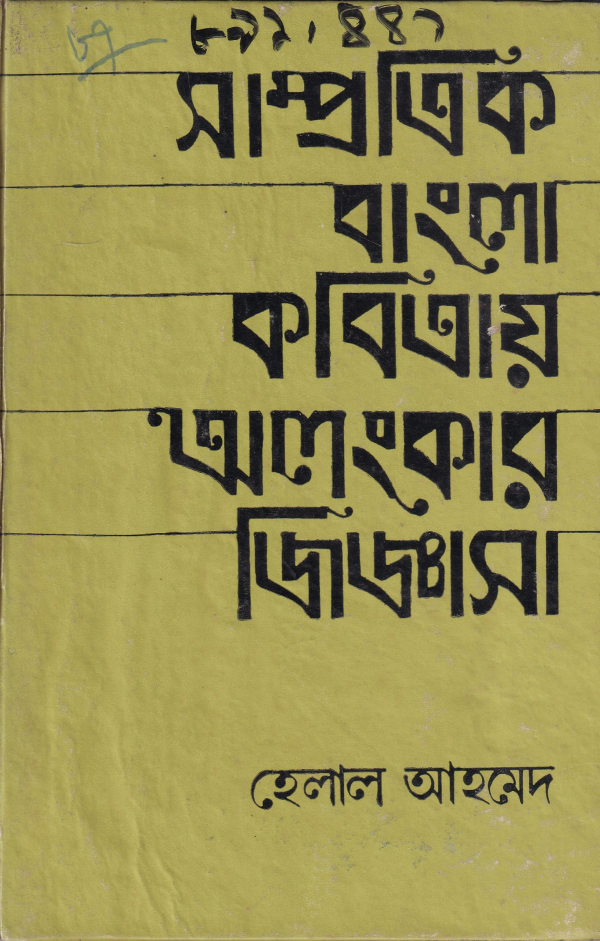 ৮৯১.৪৪১
সাম্প্রতিক
বাংলা
কবিতায়
অলংকার
জিজ্ঞাসা
হেলাল আহমেদ